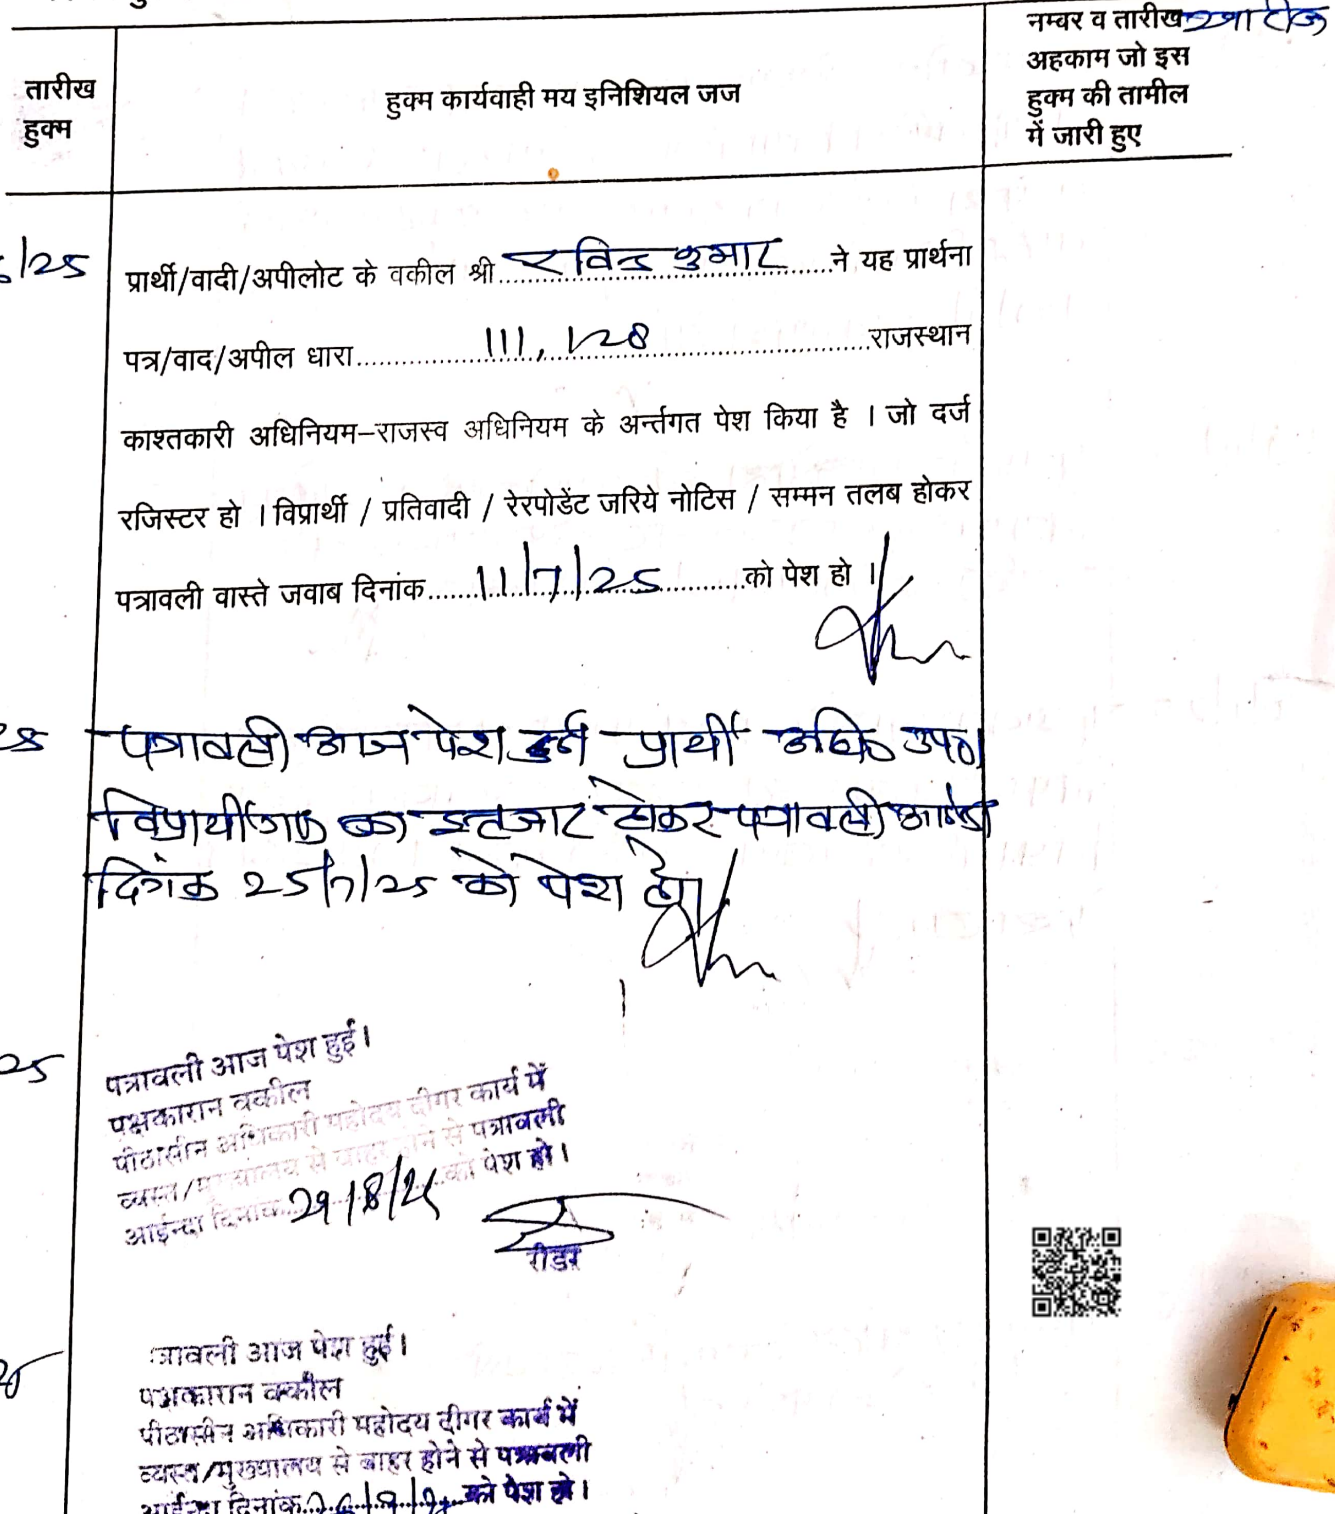 नम्बर व तारीख
अहकाम जो इस
हुक्म की तामील
में जारी हुए
तारीख
हुक्म
हुक्म कार्यवाही मय इनिशियल जज
/25
प्रार्थी/वादी/अपीलोट के वकील श्री रविन्द्र कुमार ने यह प्रार्थना
पत्र/वाद/अपील धारा 111, 128 राजस्थान
काश्तकारी अधिनियम–राजस्व अधिनियम के अर्न्तगत पेश किया है । जो दर्ज
रजिस्टर हो । विप्रार्थी / प्रतिवादी / रेरपोडेंट जरिये नोटिस / सम्मन तलब होकर
पत्रावली वास्ते जवाब दिनांक 11/7/25 को पेश हो ।
पत्रावली आज पेश हुई प्रार्थी अधि० उप०
विप्रार्थीगण का इन्तजार होकर पत्रावली
दिनांक 25/7/25 को पेश हो
25
पत्रावली आज पेश हुई।
पक्षकारान वकील
पीठासीन अधिकारी महोदय दीगर कार्य में
व्यस्त/मुख्यालय से बाहर होने से पत्रावली
आईन्दा दिनांक 29/8/25 को पेश हो।
रीडर
त्रावली आज पेश हुई।
पक्षकारान वकील
पीठासीन अधिकारी महोदय दीगर कार्य में
व्यस्त/मुख्यालय से बाहर होने से पत्रावली
आईन्दा दिनांक को पेश हो।